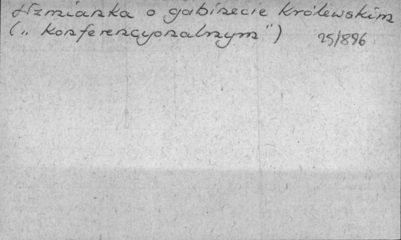 Wzmianka o gabinecie królewskim
(„konferencyonalnym") 25/896